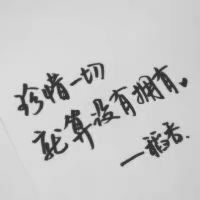 珍惜一切
就算没有拥有。
一稻香.